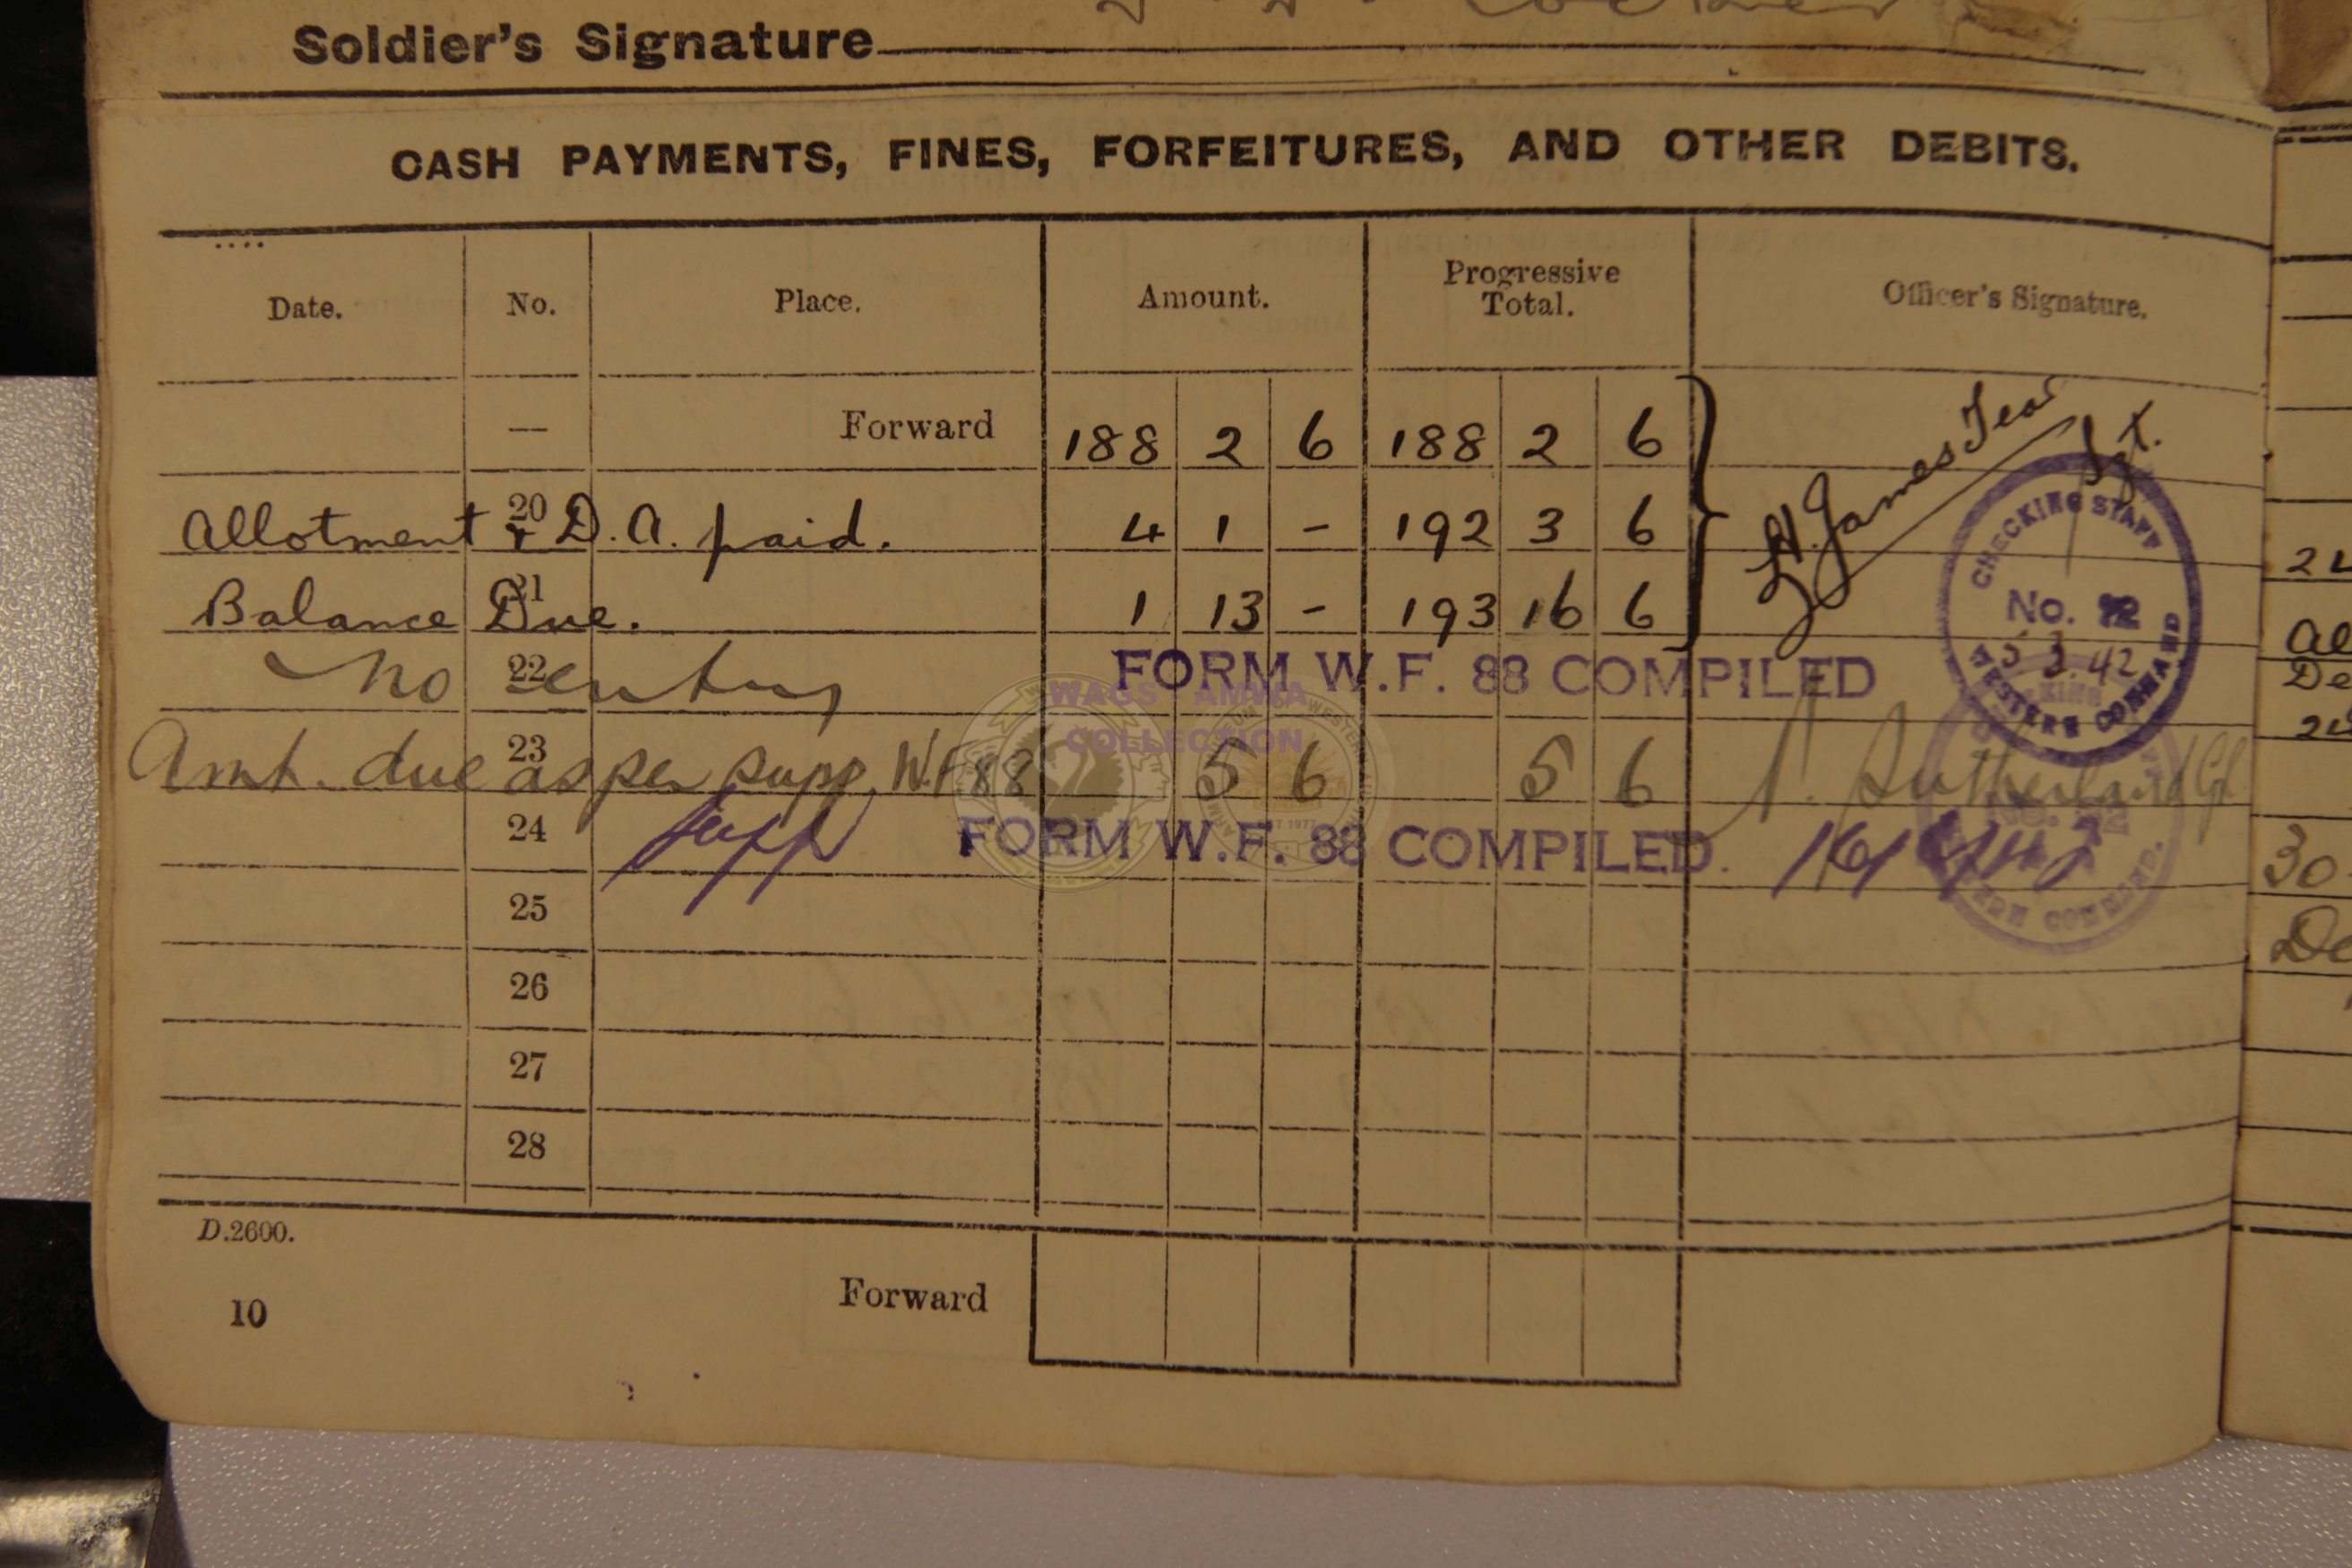 Soldier's Signature
CASH PAYMENTS, FINES, FORFEITURES, AND OTHER DEBITS.
Date. No. Place. Amount. Progressive Total. Officer's Signature.
— Forward 188 2 6 188 2 6
20 Allotment + D.A. paid. 4 1 - 192 3 6
21 Balance Due. 1 13 - 193 16 6
H. James Sgt.
CHECKING STAFF
No.
5 3 42
WESTERN COMMAND
22 No entry FORM W.F. 88 COMPILED
WAGS AMMA
COLLECTION
23 Amt. due as per supp. W.F 88 5 6 5 6 Sutherland Cpl
24 supp FORM W.F. 88 COMPILED.
COMMAND.
25
26
27
28
D.2600.
10 Forward
24
Al
De
24
30
De